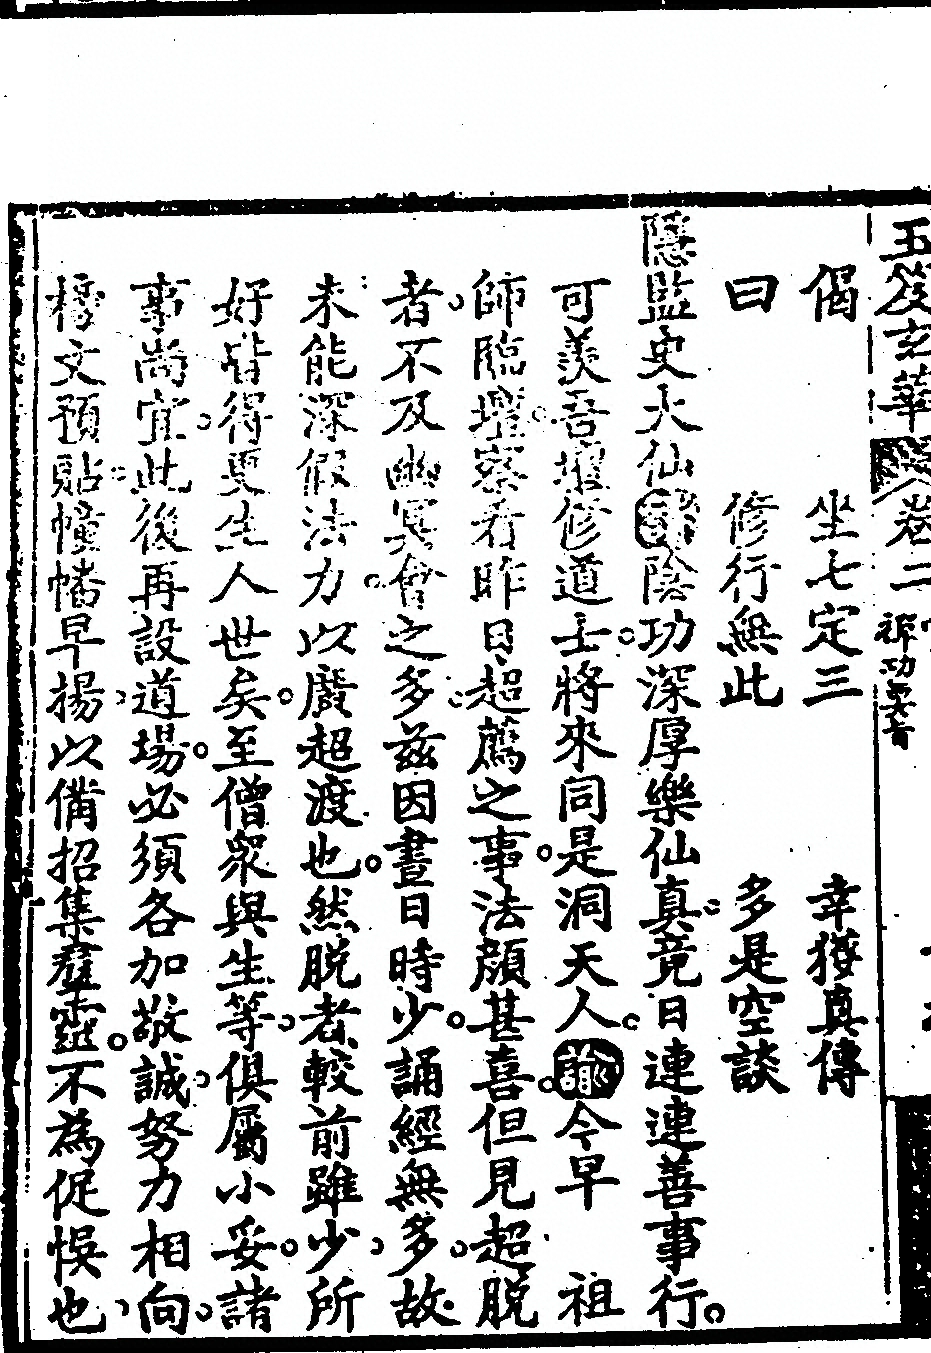 玉笈玄華 卷二
偈 坐七定三 幸獲真傳
曰 修行無此 多是空談
隱監史大仙詩陰功深厚樂仙真竟日連連善事行
可羨吾壇修道士將來同是洞天人諭今早 祖
師臨壇察看昨日超薦之事法顏甚喜但見超脫
者不及幽冥會之多茲因晝日時少誦經無多故
未能深假法力以廣超渡也然脫者較前雖少所
好皆得更生人世矣至僧眾與生等俱屬小妥諸
事尚宜此後再設道場必須各加敬誠努力相向
榜文預貼幢幡早揚以備招集羣靈不為促悞也